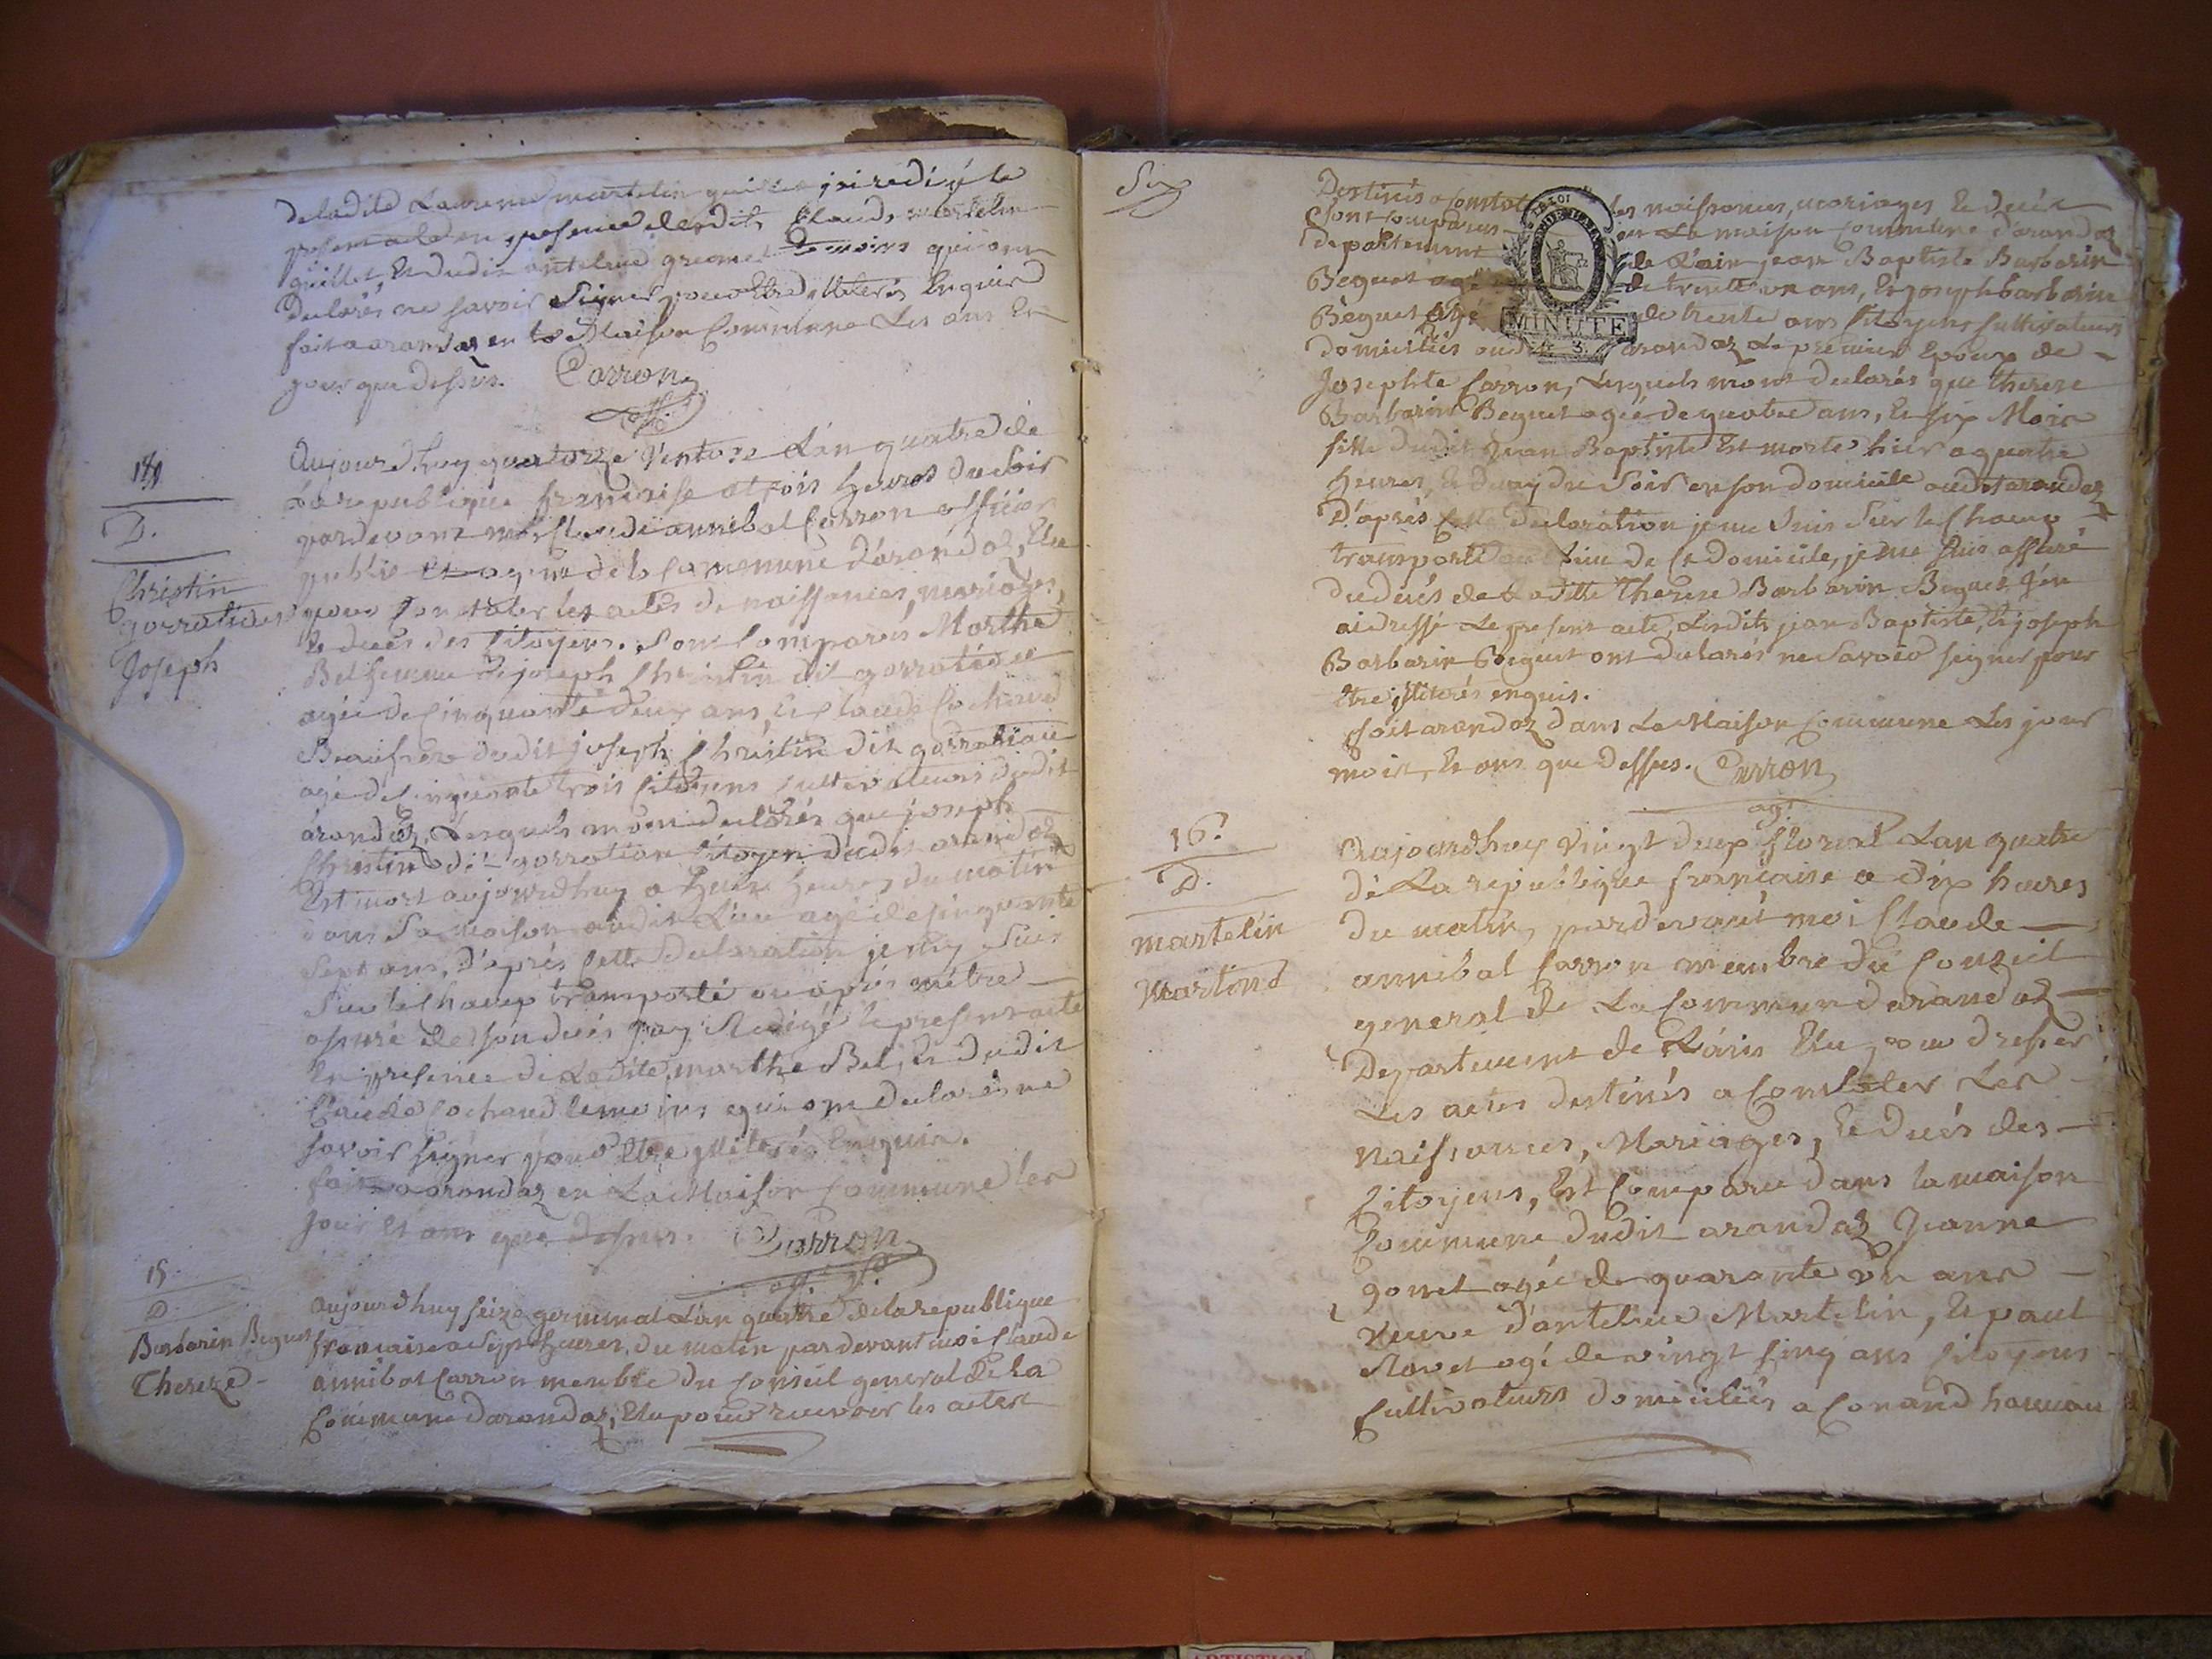 de ladite Laurence martelin guillet jai redigé le
present acte en presence desdits Claude martelin
guillet, Et dudit antelme greomet temoins qui ont
declarés ne savoir signer pour Etre jlleterés Enquis
fait a arandaz en la Maison Commune Les ans Et
jour que dessus. Carron
off.
14
D.
Christin
gorratieu
Joseph
Aujourdhuy quatorze Ventose L'an quatre de
La republique francaise a trois heures du soir
pardevant moi Claude annibal Carron officier
public Et agent de la Commune d'arandaz, Elu
pour Constater les actes de naissances, mariages,
Et deces des Citoyens. Sont Comparus Marthe
Bel femme de joseph Christin dit gorratieu
agée de Cinquante deux ans, Et Claude Cochand
Beaufrere dudit joseph Christin dit gorratieu
agé de cinquante trois Citoyens Cultivateurs dudit
arandaz, Lesquels m'ont declarés que joseph
Christin dit gorratieu Citoyen dudit arandaz
Est mort aujourdhuy a heures du matin
dans Sa maison audit Lieu agé de cinquante
Sept ans, D'après Cette Declaration je my Suis
Sur le Champ transporté ou après m'être
assuré de son decés jay Redigé le present acte
En presence de Ladite marthe Bel, Et dudit
Claude Cochand temoins qui ont declarés ne
savoir signer pour Etre jlleterés Enquis.
fait a arandaz en La Maison Commune les
jour Et ans que dessus. Carron
off. p.
15
D.
Barbarin Beguet
Thereze
aujourdhuy seize germinal L'an quatre de la republique
francaise a Sept heures du matin pardevant moi Claude
annibal Carron membre du Conseil general de La
Commune d'arandaz, Elu pour recevoir les actes
Six
LA LOI
MINUTE
Destinés a Constater les naissances, mariages Et decés
Sont comparus en La maison Commune d'arandaz
departement de L'ain jean Baptiste Barbarin
Beguet agé de trente un ans, Et joseph barbarin
Beguet agé de trente ans Citoyens Cultivateurs
Domiciliés audit arandaz Le premier Epoux de
Josephte Carron, Lesquels m'ont declarés que therese
Barbarin Beguet agée de quatre ans, Et six Mois
fille dudit Jean Baptiste Est morte hier a quatre
heures, Et demy du Soir en son domicile audit arandaz
D'après Cette Declaration je me Suis Sur le Champ
transporté au Lieu de Ce domicile, je me suis assuré
du decés de Ladite Therese Barbarin Beguet j'en
ai dressé Le present acte, Lesdits jean Baptiste, Et joseph
Barbarin Beguet ont declarés ne Savoir signer pour
Etre jlliterés enquis.
fait arandaz dans La Maison Commune Les jour
mois, Et ans que Dessus. Carron
ag.
16.
D.
martelin
Martine
Aujourdhuy vingt deux floreal L'an quatre
de La republique francaise a dix heures
du matin, pardevant moi Claude
annibal Carron membre du Conseil
general de La Commune d'arandaz
Departement de L'ain Elu pour dresser
Les actes destinés a Constater Les
Naissances, Mariages, Et decés des
Citoyens, Est Comparu dans la maison
Commune dudit arandaz Jeanne
gonet agée de quarante un ans
veuve d'antelme Martelin, Et paul
Navet agé de vingt cinq ans Citoyens
Cultivateurs domiciliés a Conand hameau